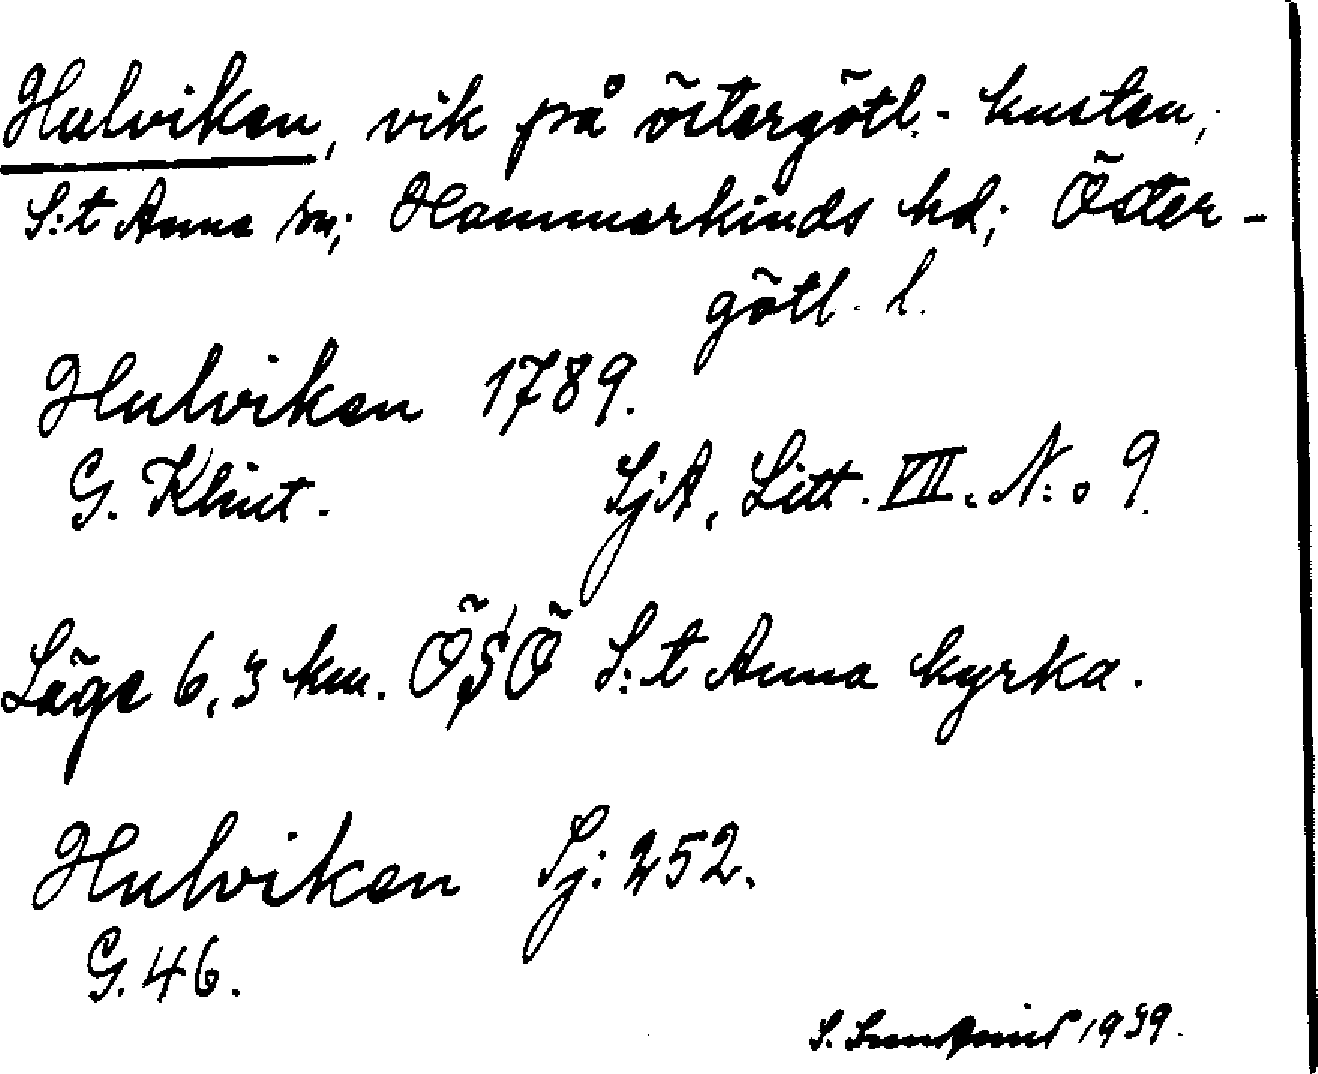 Hulviken, vik på östergötl.- kusten;
S:t Anna sn; Hammarkinds hd; Öster-
götl. l.
Hulviken 1789.
G. Klint. SjA, Litt. VII. N:o 9.
Läge 6,3 km. ÖSÖ S:t Anna kyrka.
Hulviken Sj: 252.
G. 46.
S. 1939.